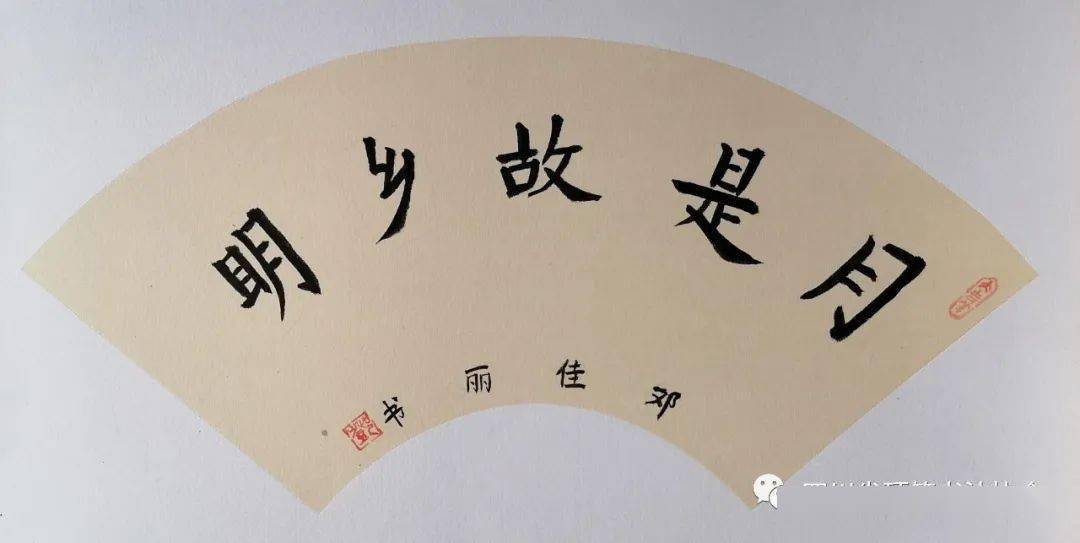 月是故乡明
邓佳丽书